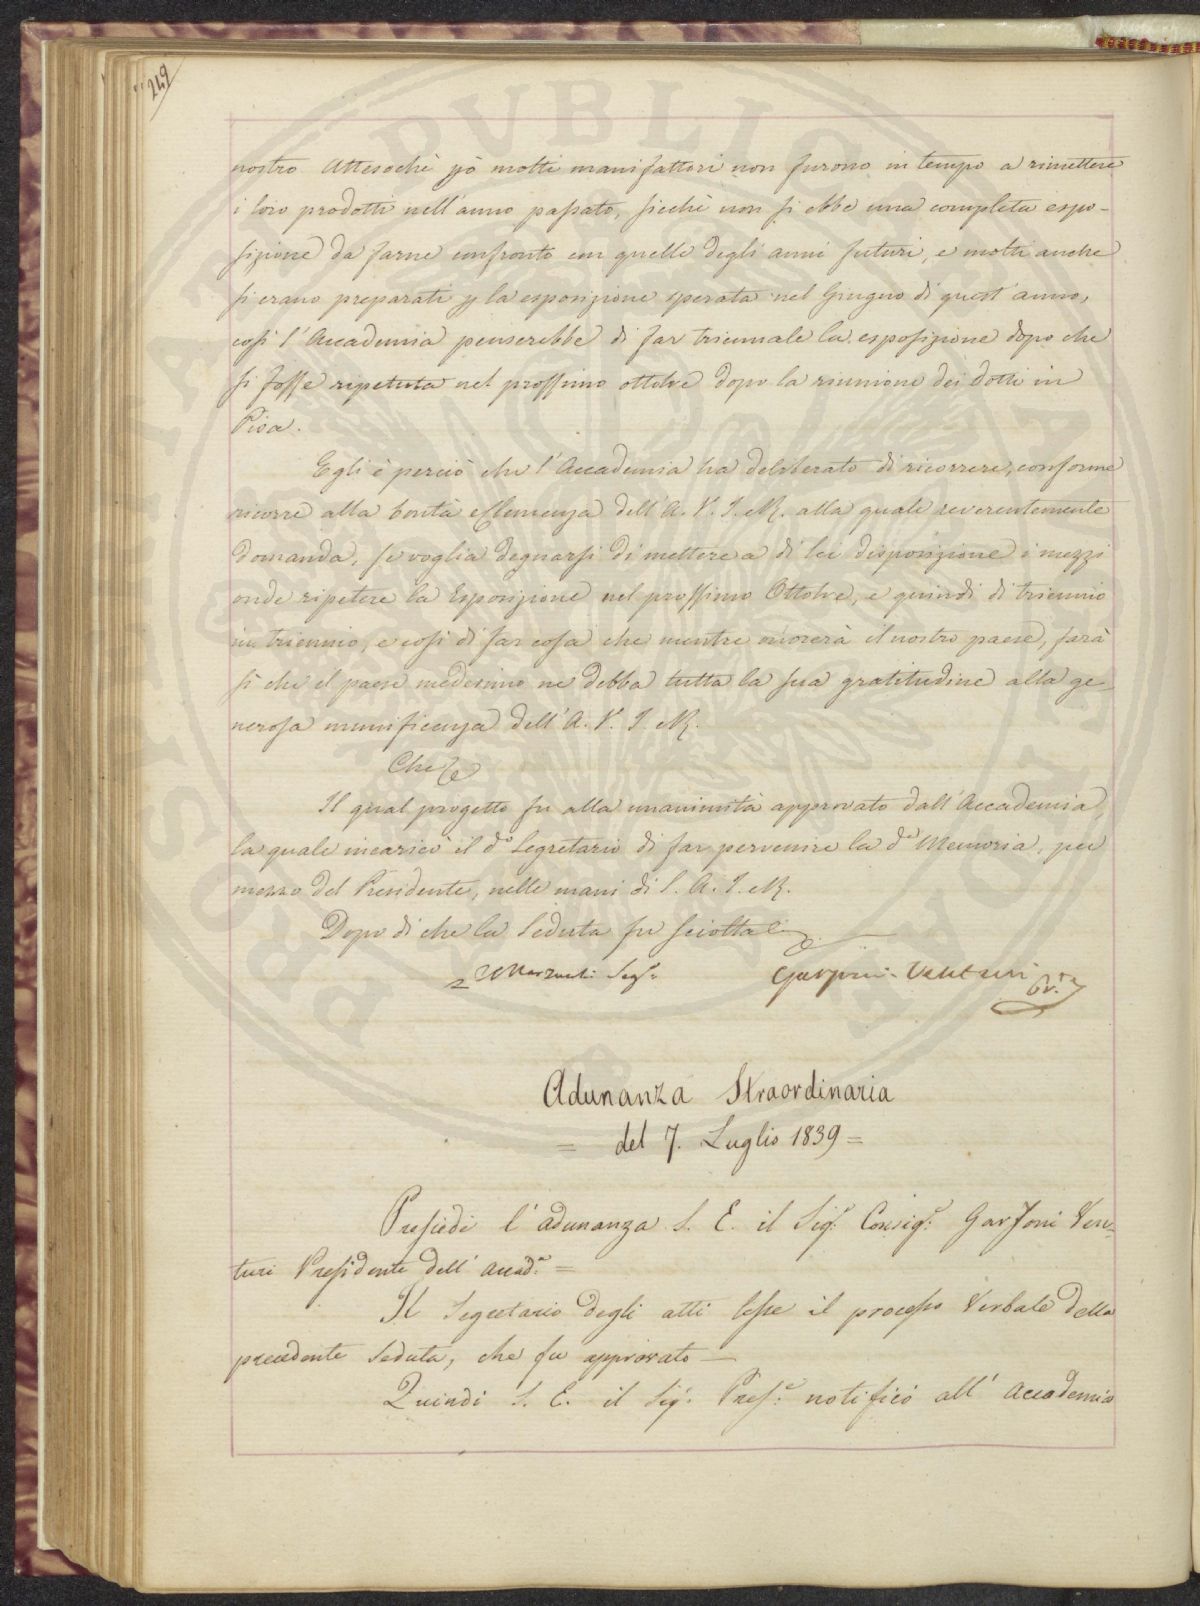 249
nostro Attesochè pò molti manifattori non furono in tempo a rimettere
i loro prodotti nell'anno passato, sicchè non si ebbe una completa espo-
sizione da farne confronto con quelle degli anni futuri, e molti anche
si erano preparati p la esposizione sperata nel Giugno di quest'anno,
così l'Accademia penserebbe di far triennale la esposizione dopo che
si fosse ripetuta nel prossimo ottobre dopo la riunione dei dotti in
Pisa.
Egli è perciò che l'Accademia ha deliberato di ricorrere, conforme
ricorre alla bontà e Clemenza dell'A. V. I. e R. alla quale reverentemente
domanda, se voglia degnarsi di mettere a di lei disposizione i mezzi
onde ripetere la Esposizione nel prossimo Ottobre, e quindi di triennio
in triennio, e così di far cosa che mentre onorerà il nostro paese, farà
sì che il paese medesimo ne debba tutta la sua gratitudine alla ge-
nerosa munificenza dell'A. V. I. e R.
Che
Il qual progetto fu alla unanimità approvato dall'Accademia,
la quale incaricò il do Segretario di far pervenire la da Memoria, per
mezzo del Presidente, nelle mani di S. A. I. e R.
Dopo di che la Seduta fu sciolta
Segr. Venturi Pr.
Adunanza Straordinaria
= del 7. Luglio 1839 =
Presiedè l'adunanza S. E. il Sigr. Consigr. Garzoni Ven-
turi Presidente dell'Accada. =
Il Segretario degli atti lesse il processo Verbale della
precedente Seduta, che fu approvato —
Quindi S. E. il Sigr. Prese. notificò all'Accademia
PVBLICA